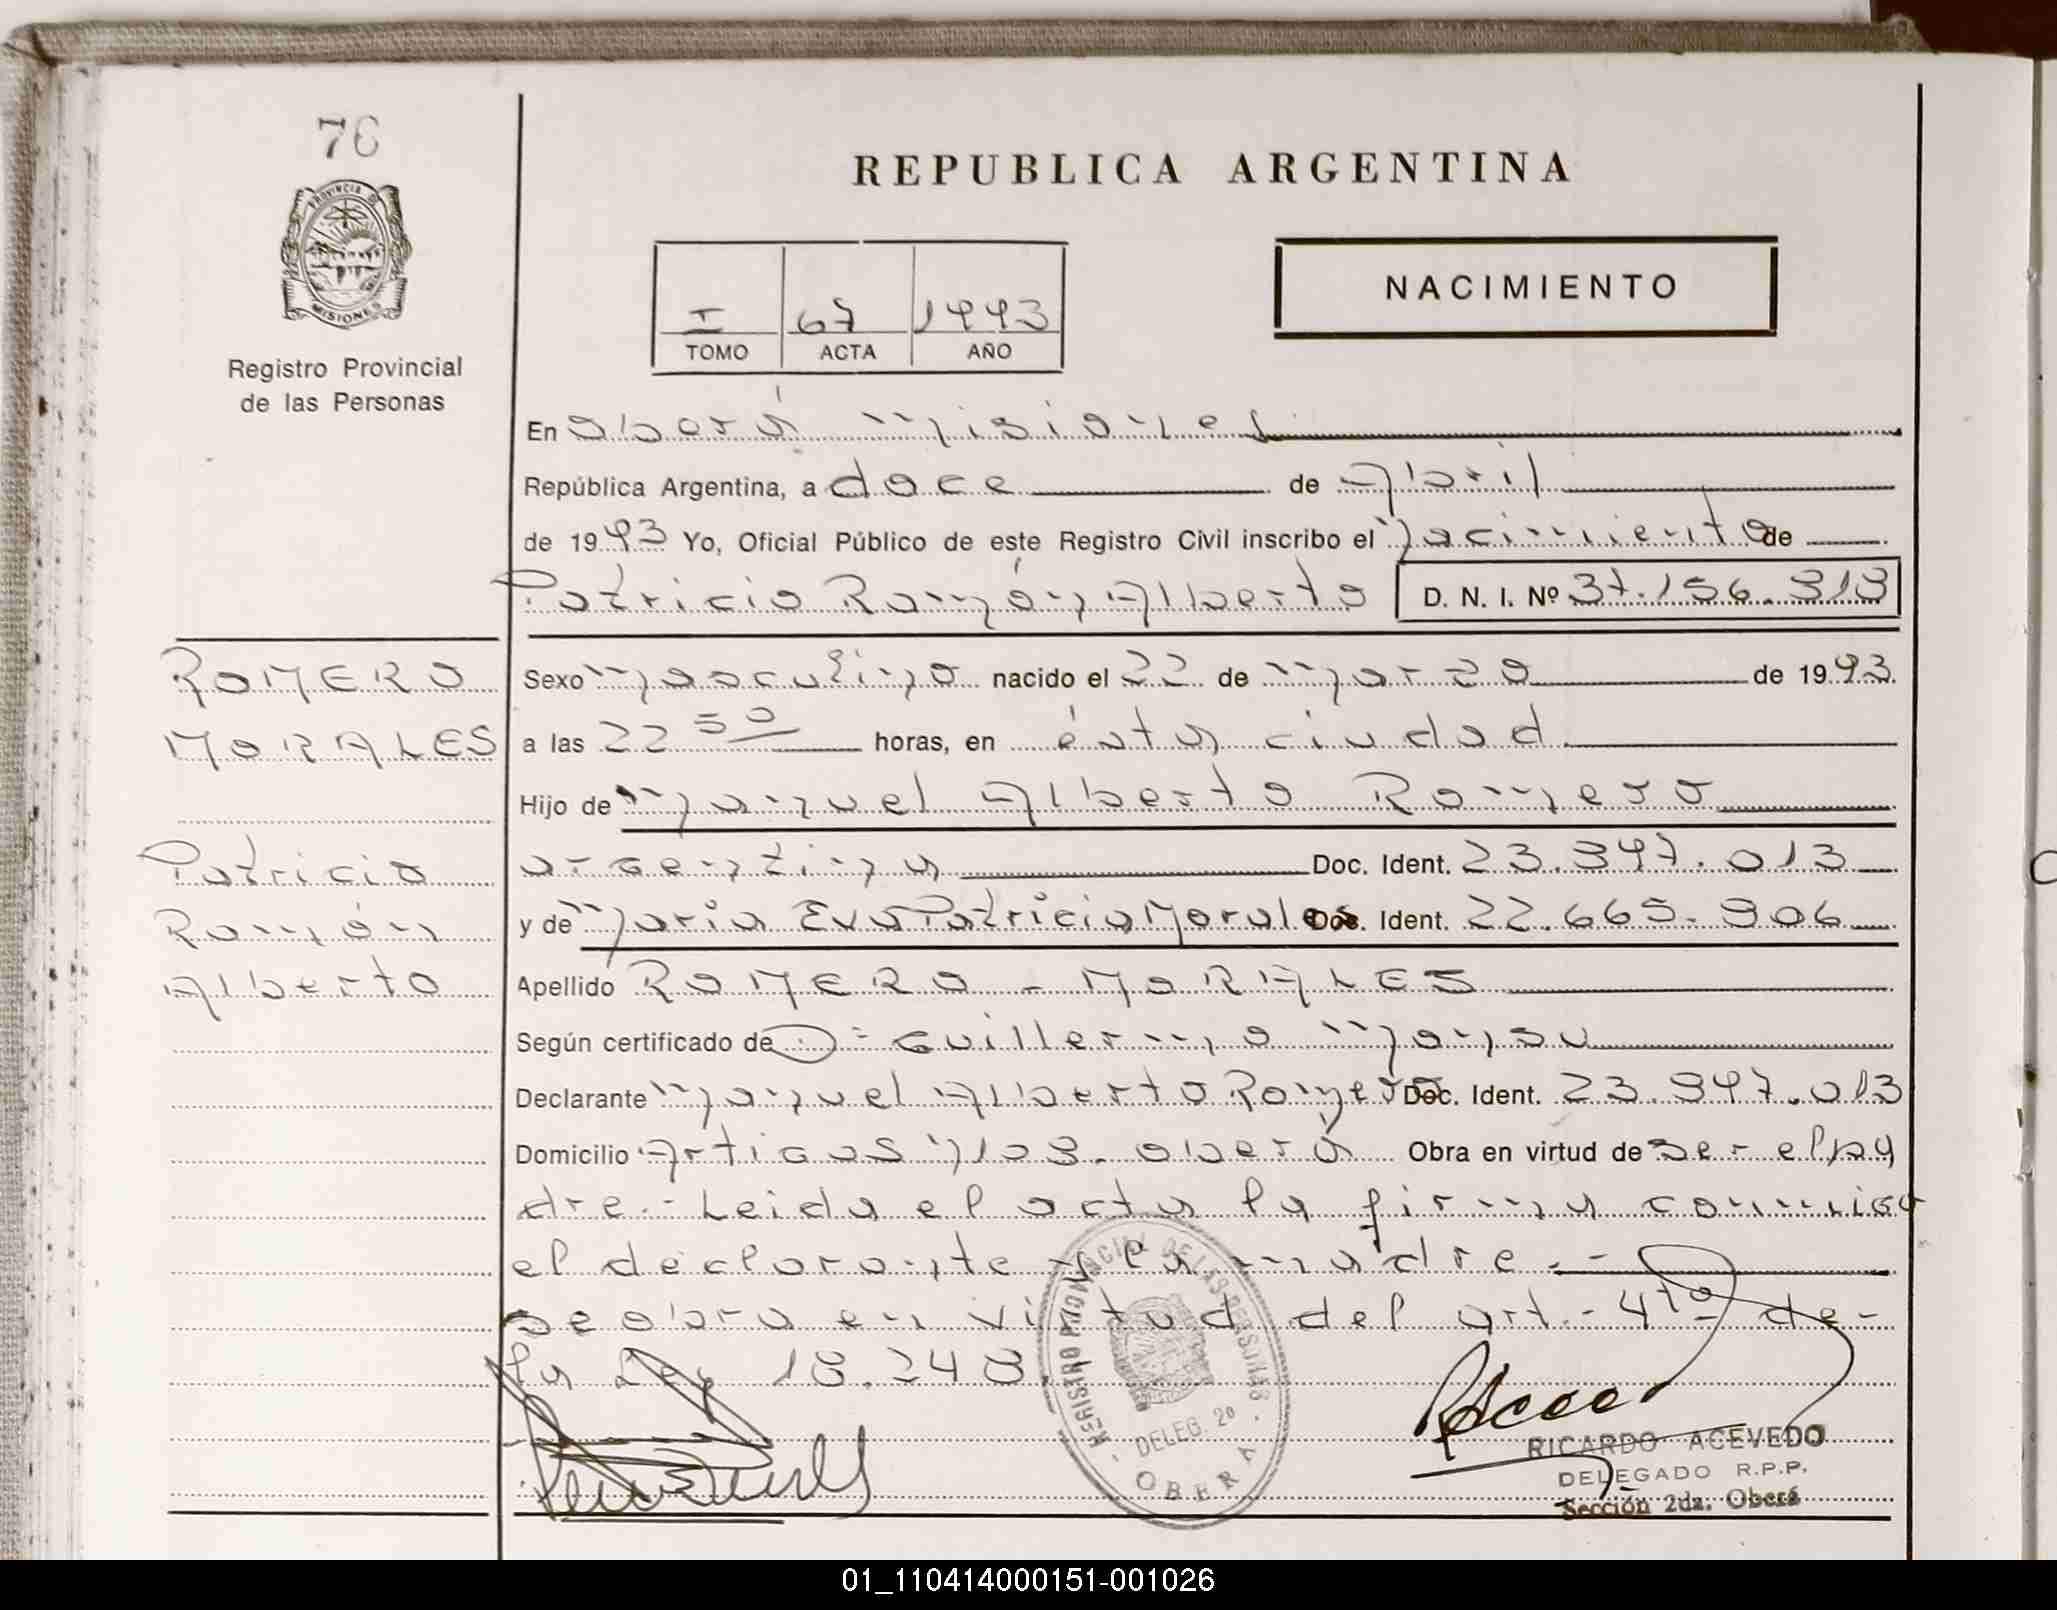 76
PROVINCIA DE
MISIONES
Registro Provincial
de las Personas
REPUBLICA ARGENTINA
NACIMIENTO
I 67 1993
TOMO ACTA AÑO
En Oberá Misiones
República Argentina, a doce de Abril
de 1993 Yo, Oficial Público de este Registro Civil inscribo el Nacimiento de
Patricio Ramón Alberto D. N. I. Nº 37.156.313
ROMERO
MORALES
Patricio
Ramón
Alberto
Sexo Masculino nacido el 22 de Marzo de 1993
a las 22 50 horas, en ésta ciudad
Hijo de Manuel Alberto Romero
argentina Doc. Ident. 23.397.013
y de Maria Eva Patricia Morales Doc. Ident. 22.665.906
Apellido ROMERO - MORALES
Según certificado de D: Guillermo
Declarante Manuel Alberto Romero Doc. Ident. 23.397.013
Domicilio Artigas Nº 103. Oberá Obra en virtud de ser el pa
dre.- Leida el acta la firma conmigo
el declarante y la madre.-
Se obra en virtud del art.- 4to de-
la Ley 18.248.
REGISTRO PROVINCIAL DE LAS PERSONAS
DELEG. 2º
OBERA
RICARDO ACEVEDO
DELEGADO R.P.P.
Sección 2da. Oberá
01_110414000151-001026